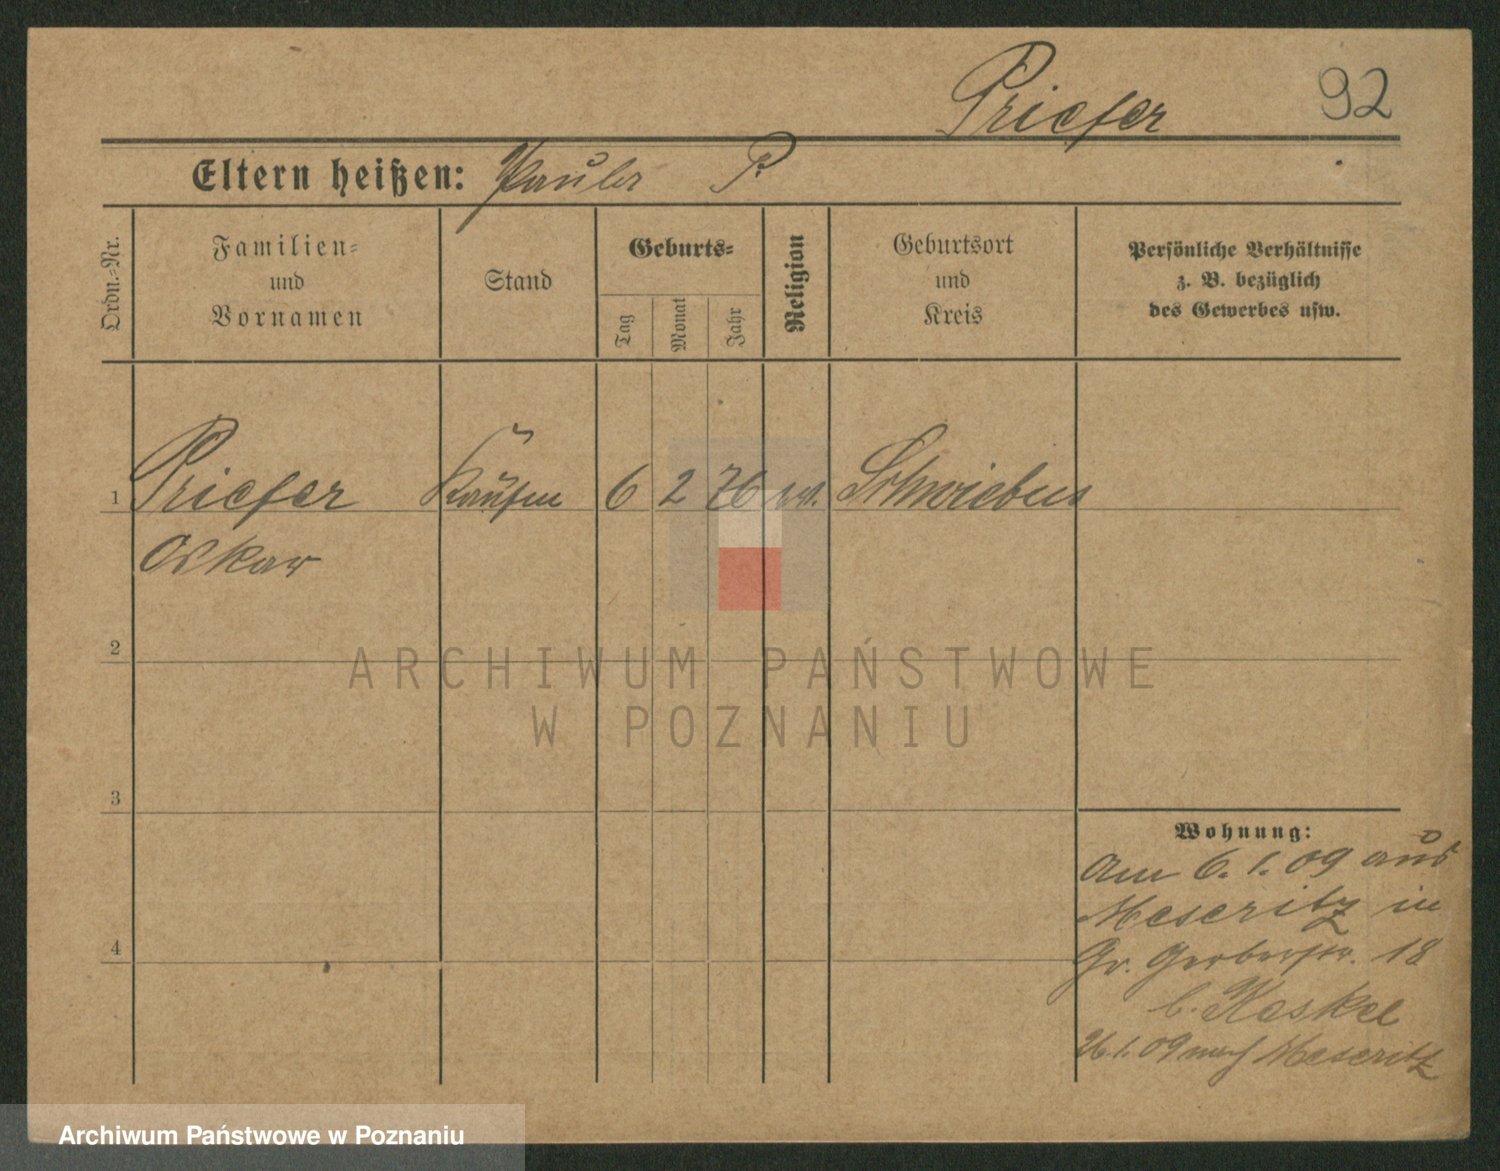 Priefer 92
Eltern heißen: P.
Ordn.-Nr.
Familien-
und
Vornamen
Stand
Geburts-
Tag
Monat
Jahr
Religion
Geburtsort
und
Kreis
Persönliche Verhältnisse
z. B. bezüglich
des Gewerbes usw.
1 Priefer Kaufm 6 2 76 Schwiebus
Oskar
2
3
4
Wohnung:
Am 6. 1. 09 aus
Meseritz in
Gr. Gerberstr. 18
b. Keskel
26.1.09 nach Meseritz
ARCHIWUM PAŃSTWOWE
W POZNANIU
Archiwum Państwowe w Poznaniu